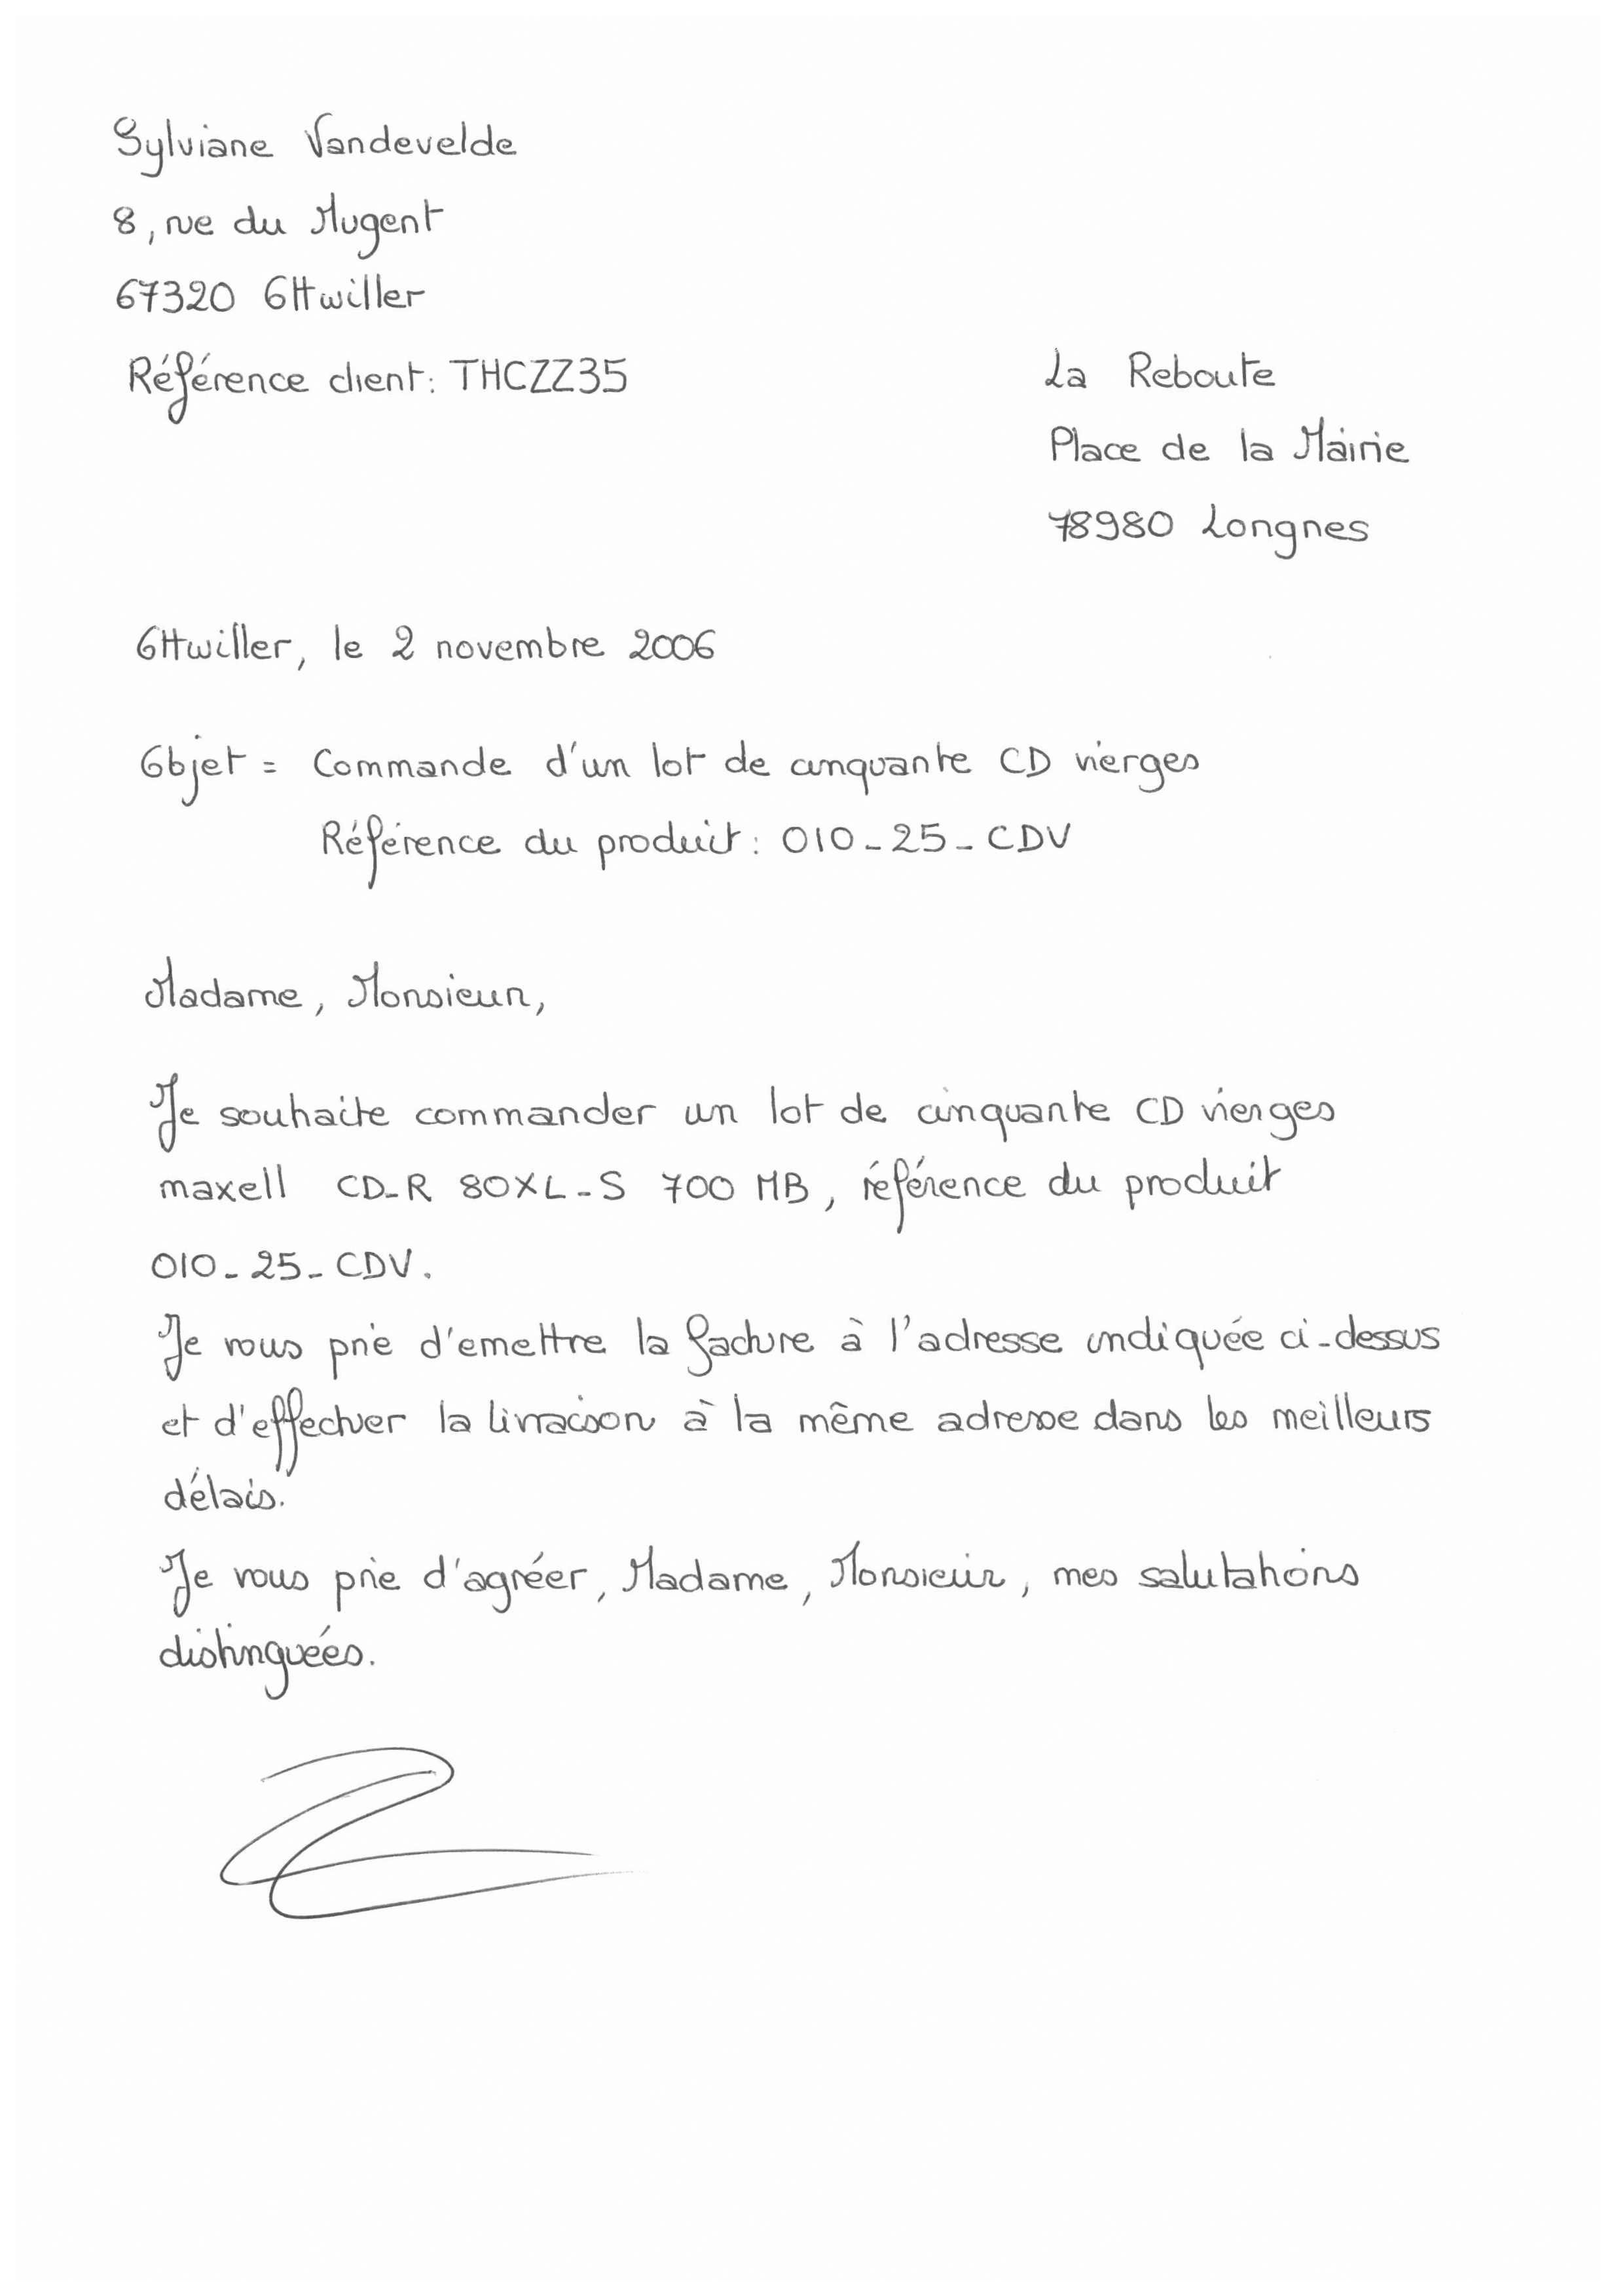 Sylviane Vandevelde
8, rue du Mugent
67320 Ottwiller
Référence client: THCZZ35
La Reboute
Place de la Mairie
78980 Longnes
Ottwiller, le 2 novembre 2006
Objet = Commande d'un lot de cinquante CD vierges
Référence du produit : 010-25-CDV
Madame, Monsieur,
Je souhaite commander un lot de cinquante CD vierges
maxell CD-R 80XL-S 700 MB, référence du produit
010-25-CDV.
Je vous prie d'emettre la facture à l'adresse indiquée ci-dessus
et d'effectuer la livraison à la même adresse dans les meilleurs
délais.
Je vous prie d'agréer, Madame, Monsieur, mes salutations
distinguées.